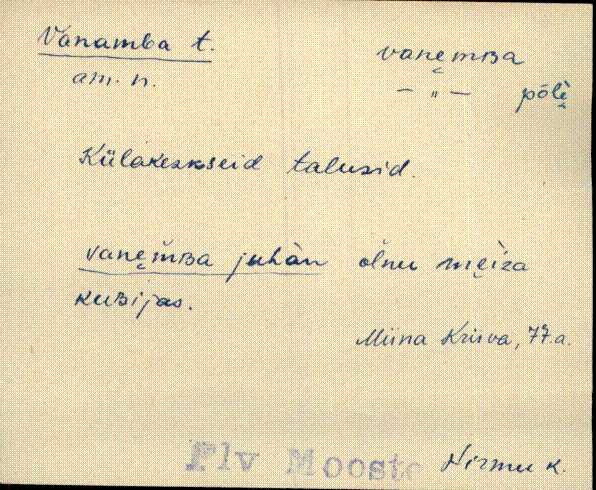 Vanamba t.
vane̬mʙa
am. n.
— „ — põlè̬
Külakeskseid talusid.
vane̬mʙa juhàn olnu me̬iza
kuʙijas.
Miina Krisva, 77.a.
Plv Mooste Hirmu k.